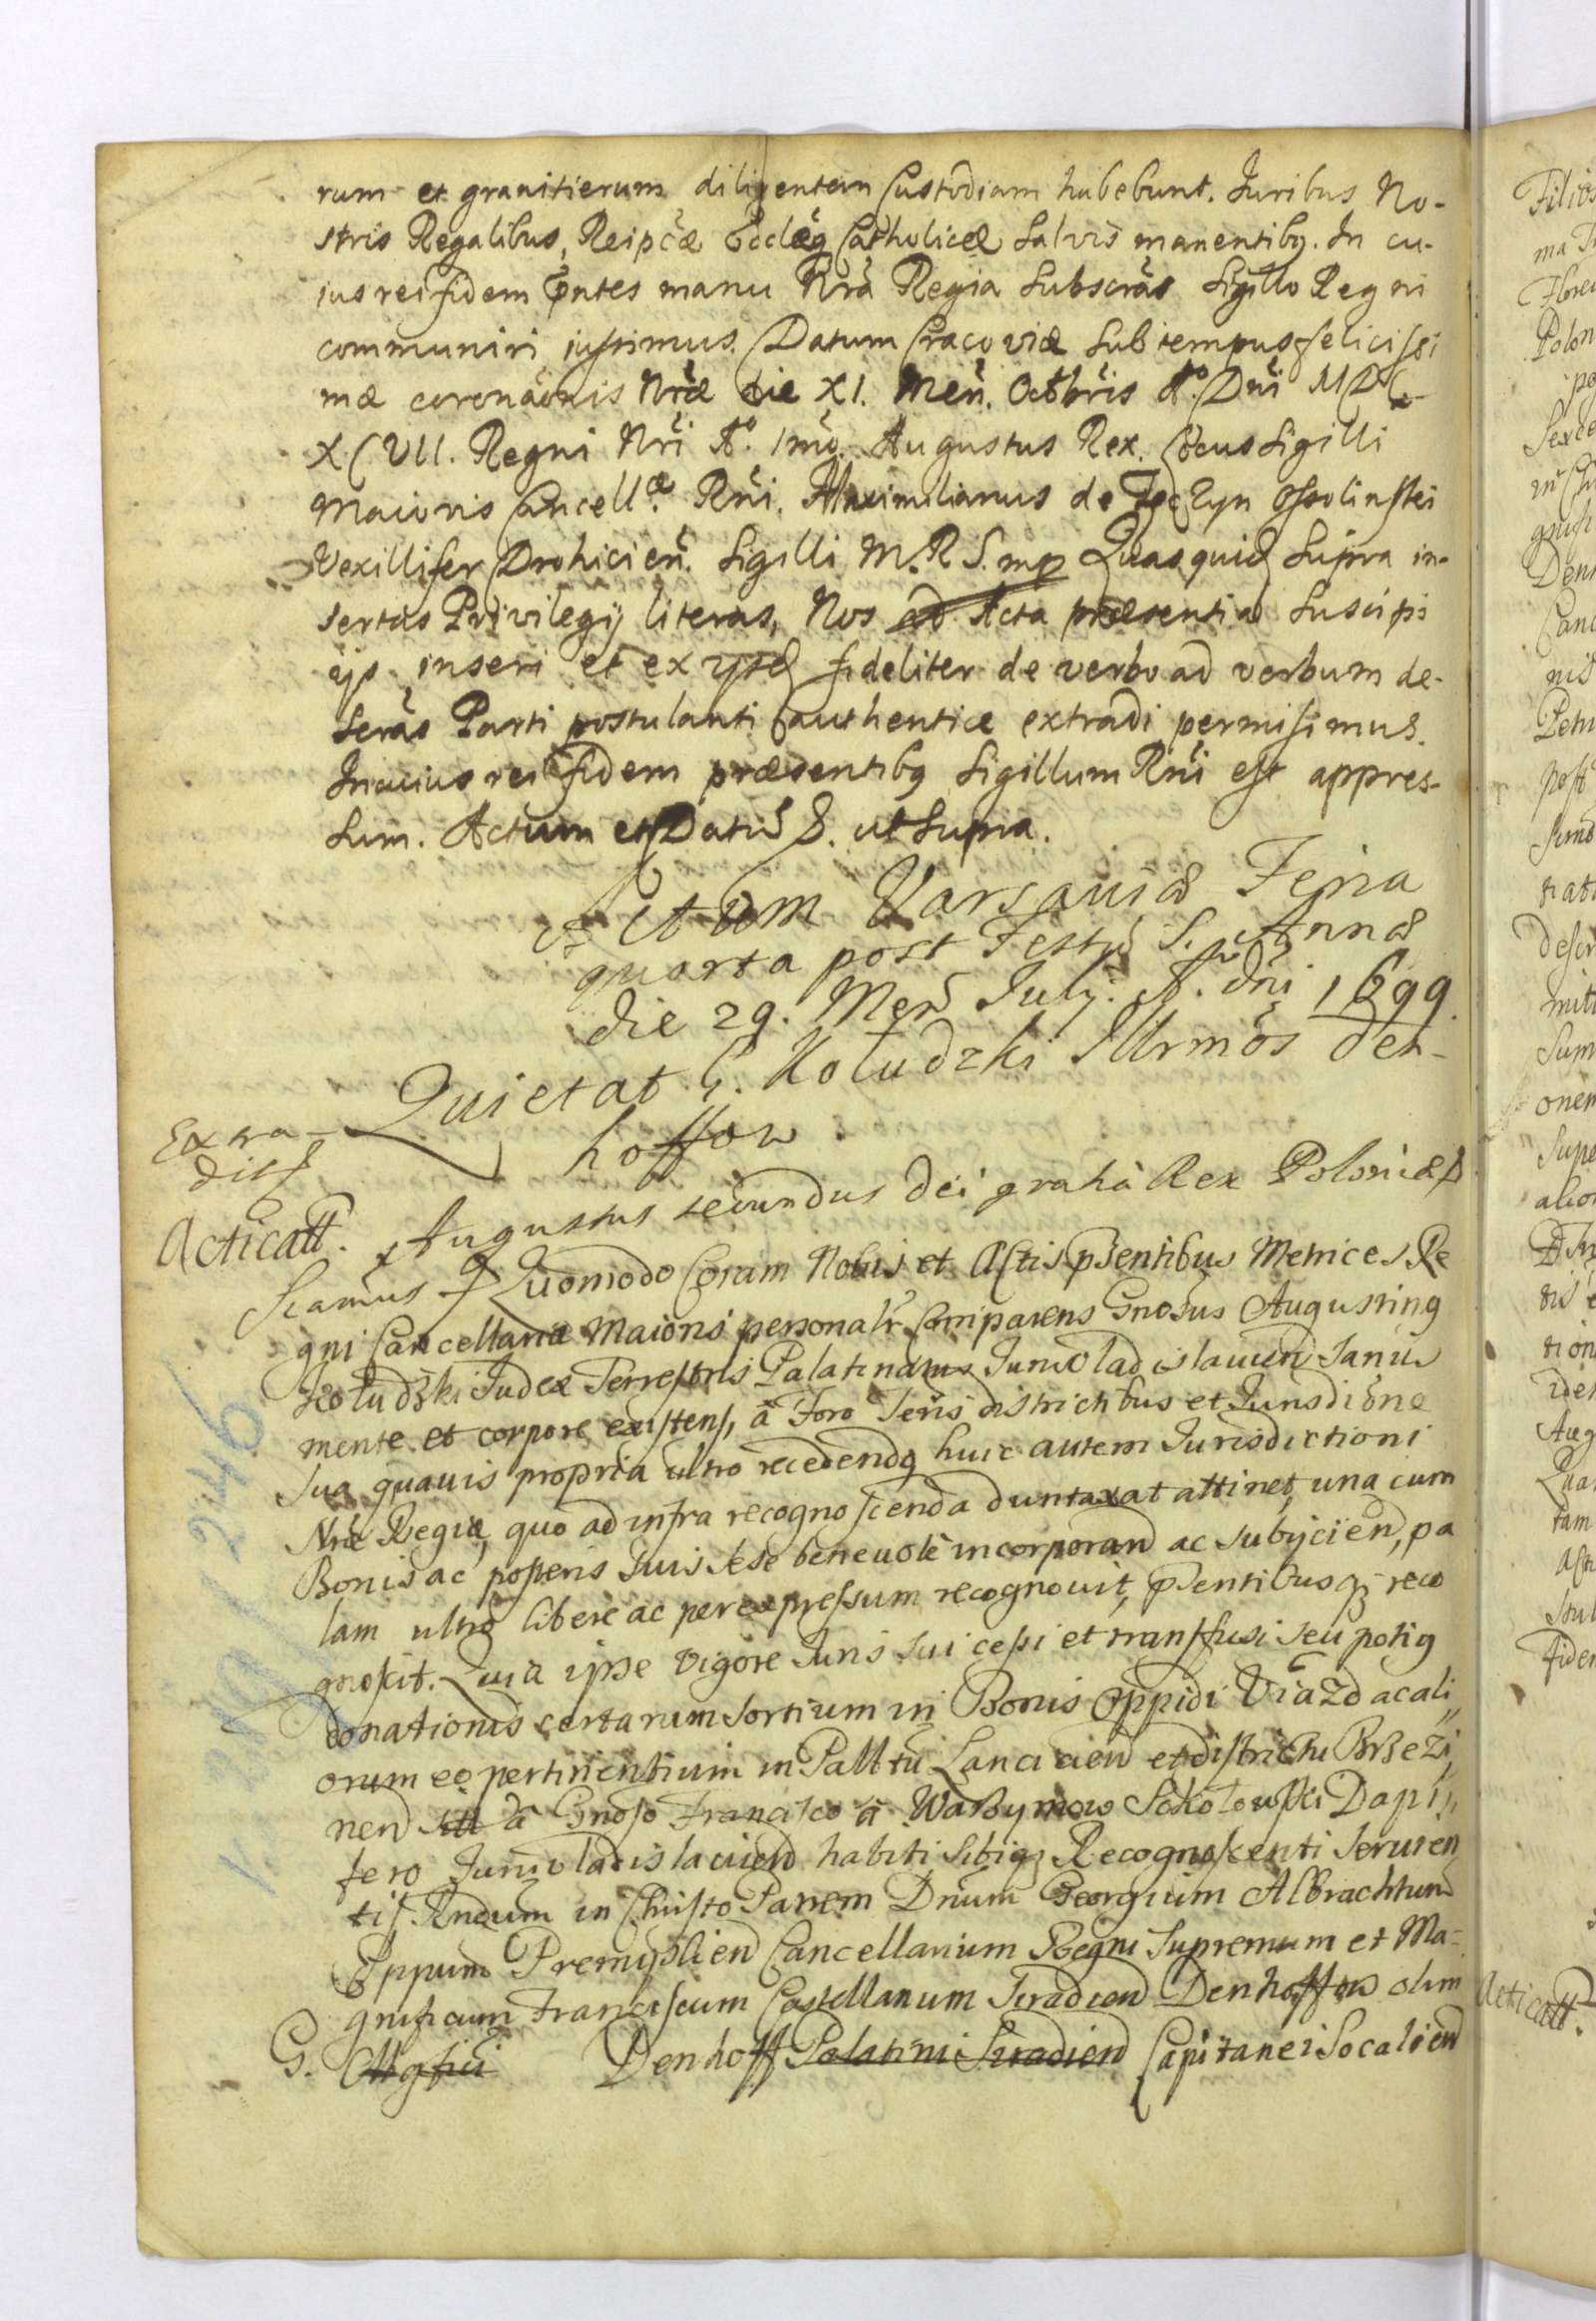 rum et granitierum diligentem Custodiam habebunt. Iuribus No-
stris Regalibus, Reipcæ Ecclæq Catholicæ Salvis manentibq. In cu-
ius rei fidem Pntes manu Nrã Regia Subscrãs Sigillo Regni
communiri iussimus. Datum Cracoviæ Sub tempus felicissi
mæ coronãonis Nræ die XI. Meñ. Octobris Aº. Dni MDC-
XCVII. Regni Nri Aº. Imo. Augustus Rex. Locus Sigilli
Maioris Cancellæ Rni. Maximilianus de Tęczyn Ossolinski
Vexillifer Drohicień. Sigilli M. R. S. mp Quas quid Supra in-
sertas Privilegij literas, Nos ad Acta præsentia Suscipi
ijs inseri et ex ijsd fideliter de verbo ad verbum de-
scrãs Parti postulanti authenticæ extradi permisimus.
In cuius rei fidem præsentibq Sigillum Rni est appres-
sum. Actum et Datũ &. ut Supra.
Actum Varsaviæ Feria
quarta post Festũ S. Annæ
die 29. Meñ July. A. dni 1699.
Quietat G. Kołudzki Illrmos Den-
hoffow
Extra-
dit
Acticatt.
Augustus secundus Dei gratiâ Rex Poloniæ &
Scamus & Quomodo Coram Nobis et Actis psentibus Metrices Re
gni Cancellariæ Maioris personalr Comparens Gnosus Augustinq
Kołudzki Iudex Terrestris Palatinatus Iuniuladislaviend Sanus
mente et corpore existens, â Foro Teris districtibus et Iurisdiõne
sua quavis propria ultro recedendq huic autem Iurisdictioni
Nræ Regiæ, quo ad infra recognoscenda duntaxat attinet, una cum
Bonis ac posseris Suis sese benevolè incorporand ac subijciend, pa
lam ultroq libere ac per expressum recognouit, psentibusq reco
gnoscit. Quia ipse Vigore Iuris sui cessi et transfusi seu potiq
donationis certarum sortium in Bonis Oppidi Viazd ac ali
orum eo pertinentium in Pallttũ Lanciciend et districtu Brzezi,
nend sitt â Gnoso Francisco â Warzymow Sokołowski Dapi,
fero Iuniuladislaviend habiti sibiq Recognoscenti servien
tis Rndum in Christo Patrem Dnum Georgium Albrachtum
Eppum Premysliend Cancellarium Regni Supremum et Ma-
gnificum Franciscum Castellanum Siradiend Denhoffow olim
G. Mgfici Denhoff Palatini Siradiend Capitanei Socaliend
Acticatt.